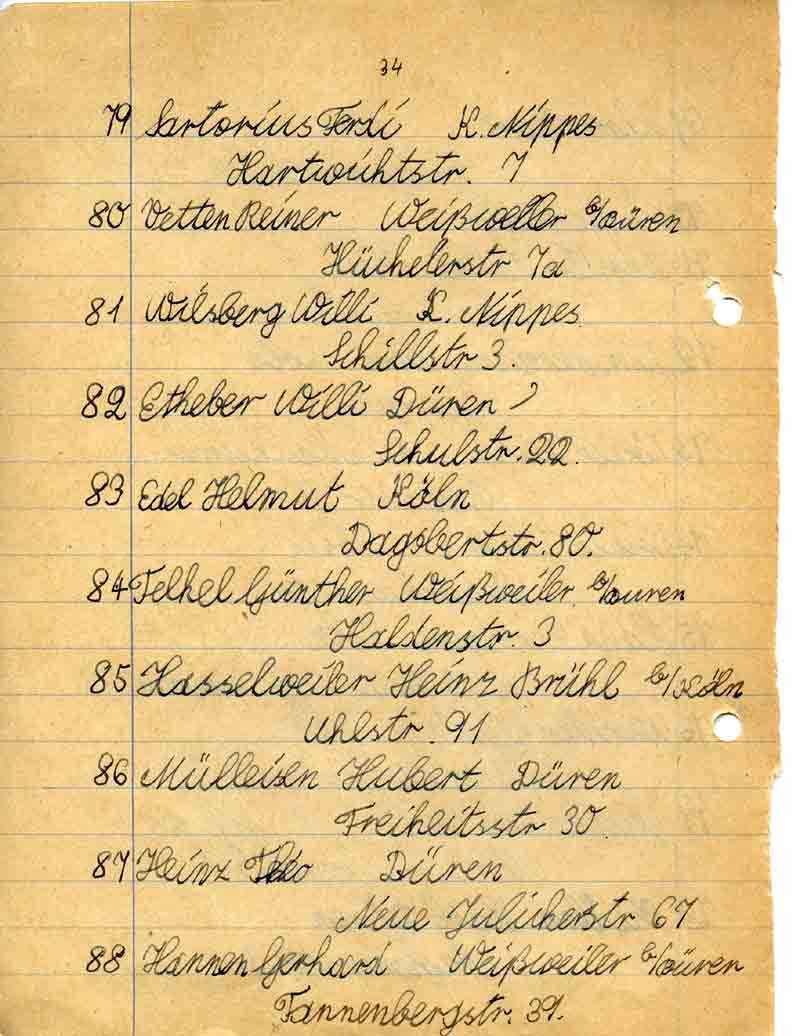 34
79 Sartorius Ferdi K. Nippes
Hartwichtstr. 7
80 Vetten Reiner Weißweiler b/Düren
Hüchelerstr 7a
81 Wilsberg Willi K. Nippes
Schillstr 3.
82 Etheber Willi Düren
Schulstr. 22.
83 Edel Helmut Köln
Dagobertstr. 80.
84 Günther Weißweiler b/Düren
Haldenstr. 3
85 Hasselweiler Heinz Brühl b/Köln
Uhlstr. 91
86 Mülleisen Hubert Düren
Freiheitsstr 30
87 Heinz Theo Düren
Neue Julicherstr 67
88 Hannen Gerhard Weißweiler b/Düren
Tannenbergstr. 39.